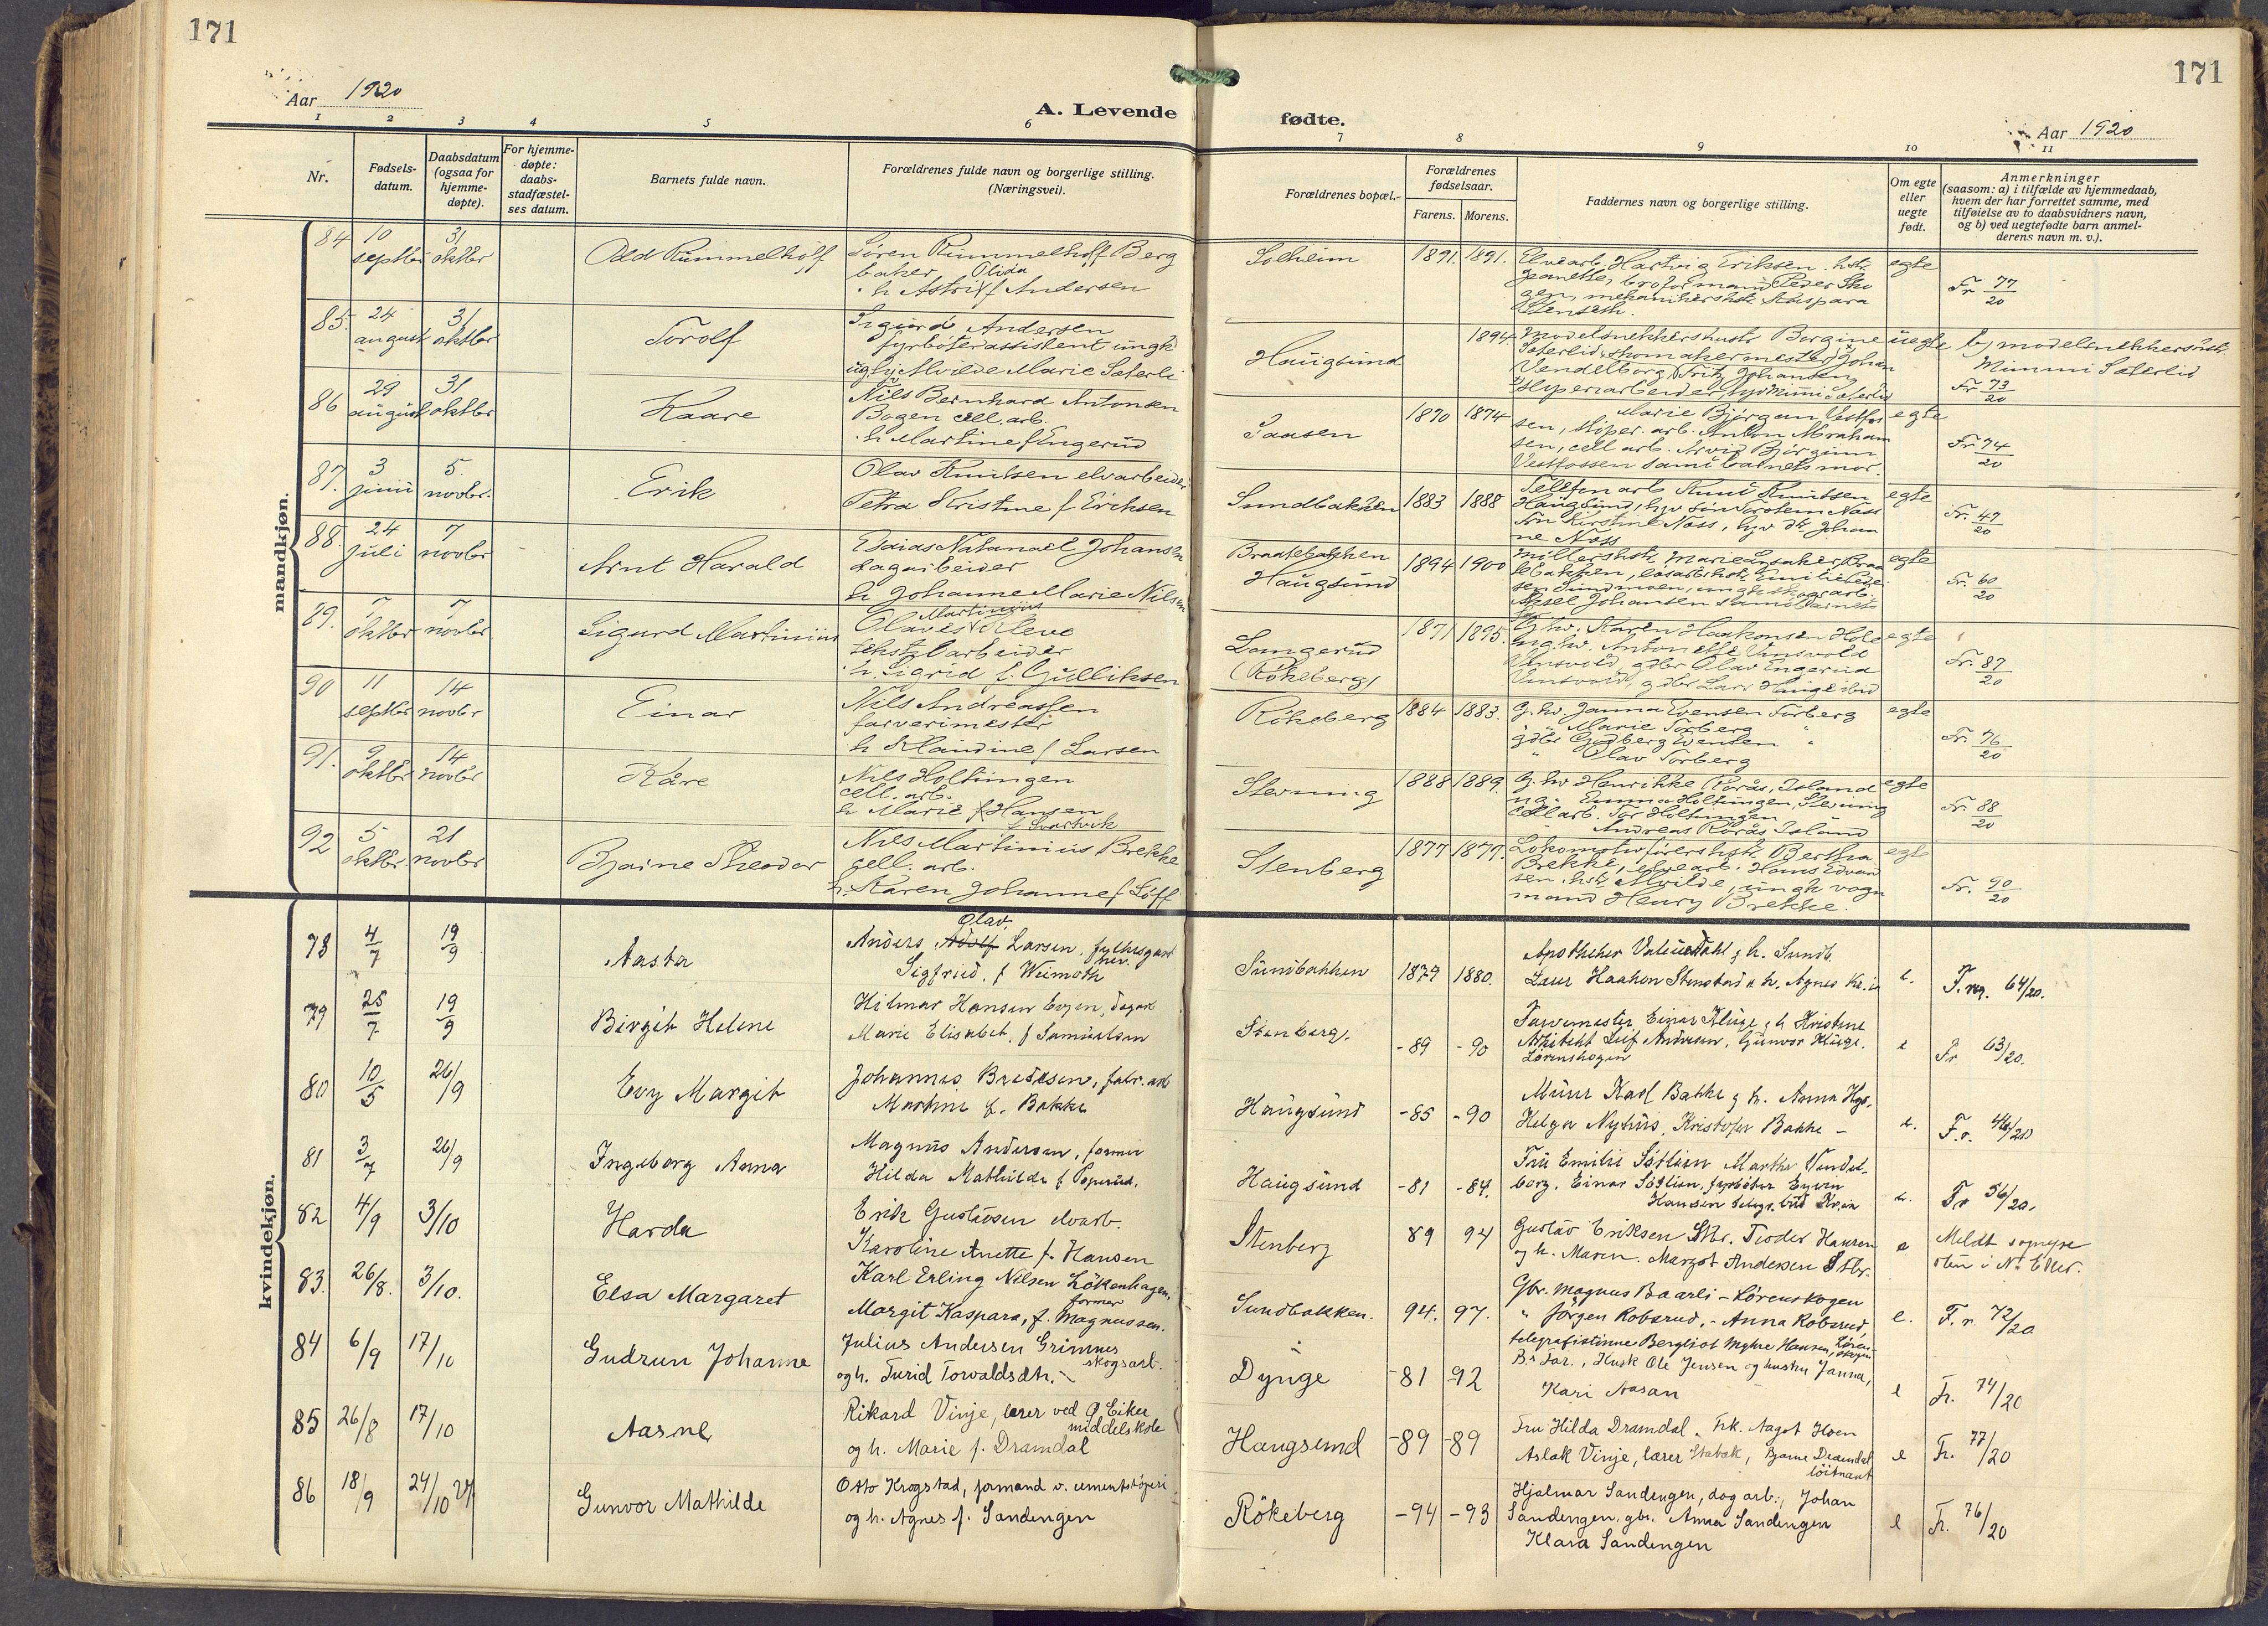 171
171
Aar 1920
A. Levende fødte.
Aar 1920
1 2 3 4 5 6 7 8 9 10 11
Nr.
Fødsels-
datum.
Daabsdatum
(ogsaa for
hjemme-
døpte).
For hjemme-
døpte:
daabs-
stadfæstel-
ses datum.
Barnets fulde navn.
Forældrenes fulde navn og borgerlige stilling.
(Næringsvei).
Forældrenes bopæl.
Forældrenes
fødselsaar.
Farens. Morens.
Faddernes navn og borgerlige stilling.
Om egte
eller
uegte
født.
Anmerkninger
(saasom: a) i tilfælde av hjemmedaab,
hvem der har forrettet samme, med
tilføielse av to daabsvidners navn,
og b) ved uegtefødte barn anmel-
derens navn m. v.).
mandkjøn.
84 10 septbr 31 oktbr Odd Rummelhoff
Søren Rummelhoff Berg
baker Olida
h Astrid f Andersen
Solheim 1891. 1891.
Elvearb. Hartvig Eriksen hstr
Jeanette, broformand Peder Sko
gen, mekanikershstr Kaspara
Stenseth.
egte Fr 77/20
85. 24 august 31 oktbr Torolf
Sigurd Andersen
fyrbøterassistent ungk
Alvilde Marie Sæterli
Haugsund 1894.
Modelsnekkershustr Borgine
Sæterlid, skomakermester Johan
Vendelborg, Fritz Johansen
uegte
modelsnekkershstr.
Mimmi Sæterlid
Fr 73/20
86 29 august 31 oktbr Kaare
Nils Bernhard Antonsen
Bagen cell. arb.
h Martine f Engerud
Saasen 1870 1874
Marie Bjørgum Vestfos
sen, sliper. arb. Anton Abraham
sen, cell arb. Arvid Bjørgum
Vestfossen samt barnets mor.
egte Fr 74/20
87. 3 juni 5. novbr. Erik
Olav Knutsen elvarbeider
Petra Kristine f Eriksen
Sundbakken 1883 1888
Telefonarb Knut Knutsen
Haugsund, Torstein Næss
Fru Kirstine Næss, Johan
ne Næss
egte Fr. 47/20
88. 24 juli 7 novbr Arnt Harald
Esaias Natanael Johansen
dagarbeider
h Johanne Marie Nilsen
Braatebakken
Haugsund 1894 1900
Møllershstr Marie Braa
tebakken, Emilie Peder
sen Sundmoen, ungk skogarb.
Aksel Johansen samt barnets
far
egte Fr. 60/20
89. 7 oktbr 7 novbr Sigurd Martinius
Martinius
Olaves Kleve
tekstilarbeider
h. Sigrid f. Gulliksen
Langerud
(Røkeberg) 1871 1895.
G.hv. Karen Haakonsen Hole
ug.hv. Antonette Unsvold
Unsvold, gdbr Olav Engerud
Unsvold, gdbr Lars Hauge ibid
egte Fr. 87/20
90 11 septbr 14 novbr Einar
Nils Andreassen
farverimester
h Klaudine f Larsen
Røkeberg 1884 1883.
G. hv. Janna Evensen Torberg
" Marie Torberg
gdbr Gudberg Evensen "
" Olav Torberg
egte Fr. 76/20
91. 9 oktbr 14 novbr Kåre
Nils Holtungen
cell. arb.
h Marie f Hansen
f Svartvik
Sterning 1888 1889.
G. hv Henrikke Rørås, Island
ug. Emma Holtungen, Sterning
Cell arb. Tor Holtungen
Andreas Rørås Island
egte Fr. 88/20
92 5 oktbr 21 novbr Bjarne Theodor
Nils Martinius Brekke
cell. arb.
h. Karen Johanne f Løff
Stenberg 1877 1877.
Lokomotivførershstr. Bertha
Brekke, elvearb. Hans Edvard
sen, hstr Alvilde, ungk vogn
mand Henry Brekke.
egte Fr. 90/20
kvindekjøn.
78 4/7 19/9 Aasta
Olav
Anders Adolf Larsen, fylkesgart
ner.
Sigfrid f Weimoth
Sundbakken 1879 1880.
Apotheker Dahl g h. Sundb.
Haakon Stenstad h. Agnes Kr.ia
e. F. reg. 64/20.
79 25/7 19/9 Birgit Helene
Hilmar Hansen Evjen, dagarb
Marie Elisabet f Samuelsen
Stenberg. -89 -90
Farvemester Einar Kluge, h Kristine
Arkitekt Leif Andresen, Gunvor Kluge.
Lørenskogen
e Fr 63/20.
80 10/5 26/9 Evy Margit
Johannes Bredesen, fabr. arb
Martine f. Bakke
Haugsund -85 -90
Murer Karl Bakke g h. Anna Hgs.
Helga Nyhus, Kristofer Bakke -
e. F.r. 46/20
81 3/7 26/9 Ingeborg Anna
Magnus Andersen, former
Hilda Mathilde f Popperud.
Haugsund -81 -84.
Fru Emilie Søtlien Martha Vendel-
borg, Einar Søtlien, fyrbøter Eyvin
Hansen telegr. bud Kr.ia
e. Fr 56/20.
82 4/9 3/10 Harda
Erik Gustavsen elvarb.
Karoline Anette f. Hansen
Stenberg 89 94
Gustav Eriksen Stbr. Teodor Hansen
og h. Maren. Margot Andersen Stbr.
e Meldt sogneprs
sten i N. Eker.
83. 26/8. 3/10. Elsa Margaret
Karl Erling Nilsen Løkenhagen,
former
Margit Kaspara, f. Magnussen.
Sundbakken. 94. 97.
Gbr. Magnus Baarli - Lørenskogen
" Jørgen Kobsrud, - Anna Kobsrud,
telegrafistinne Bergliot Myhre Hansen, Lørenskogen
e. F. r. 72/20
84 6/9 17/10 Gudrun Johanne
Julius Andersen Grimnes
skogsarb.
og h. Turid Torvaldsdtr.
Dynge -81 -92
B.s Far., Husk Ole Jensen og hustru Janna,
Kari Aasan
e Fr. 74/20
85 26/8 17/10 Aasne
Rikard Vinje, lærer ved Ø Eiker
middelskole
og h. Marie f. Dramdal
Haugsund -89 -89
Fru Hilda Dramdal, Frk. Aagot Hoen
Aslak Vinje, lærer Stabæk, Bjarne Dramdal
løitnant
e Fr. 77/20
86 18/9 24/10 Gunvor Mathilde
Otto Krogstad, formand v. cementstøperi
og h. Agnes f. Sandengen
Rökeberg -94 -93
Hjalmar Sandengen, dagarb., Johan
Sandengen, gbr. Anna Sandengen
Klara Sandengen
e Fr. 76/20